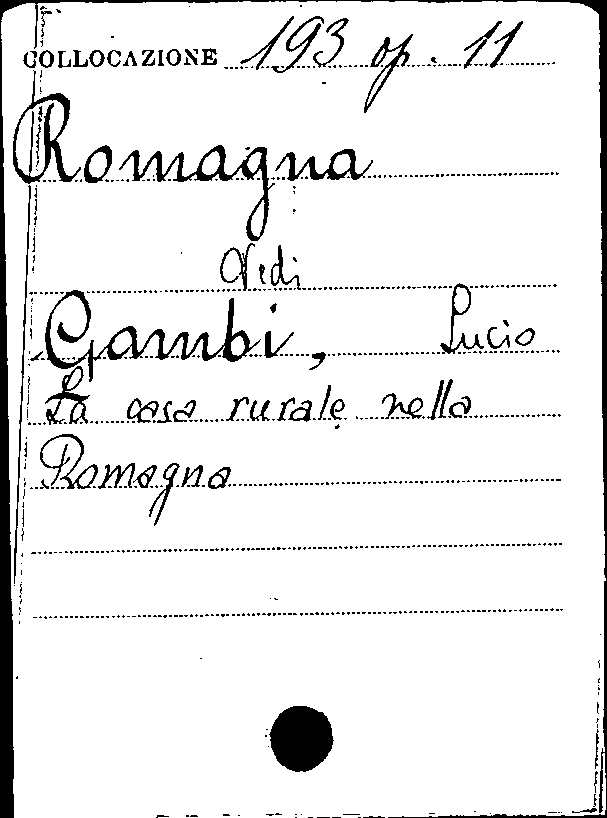 COLLOCAZIONE 193 op. 11
Romagna
Vedi
Gambi, Lucio
La casa rurale nella
Romagna